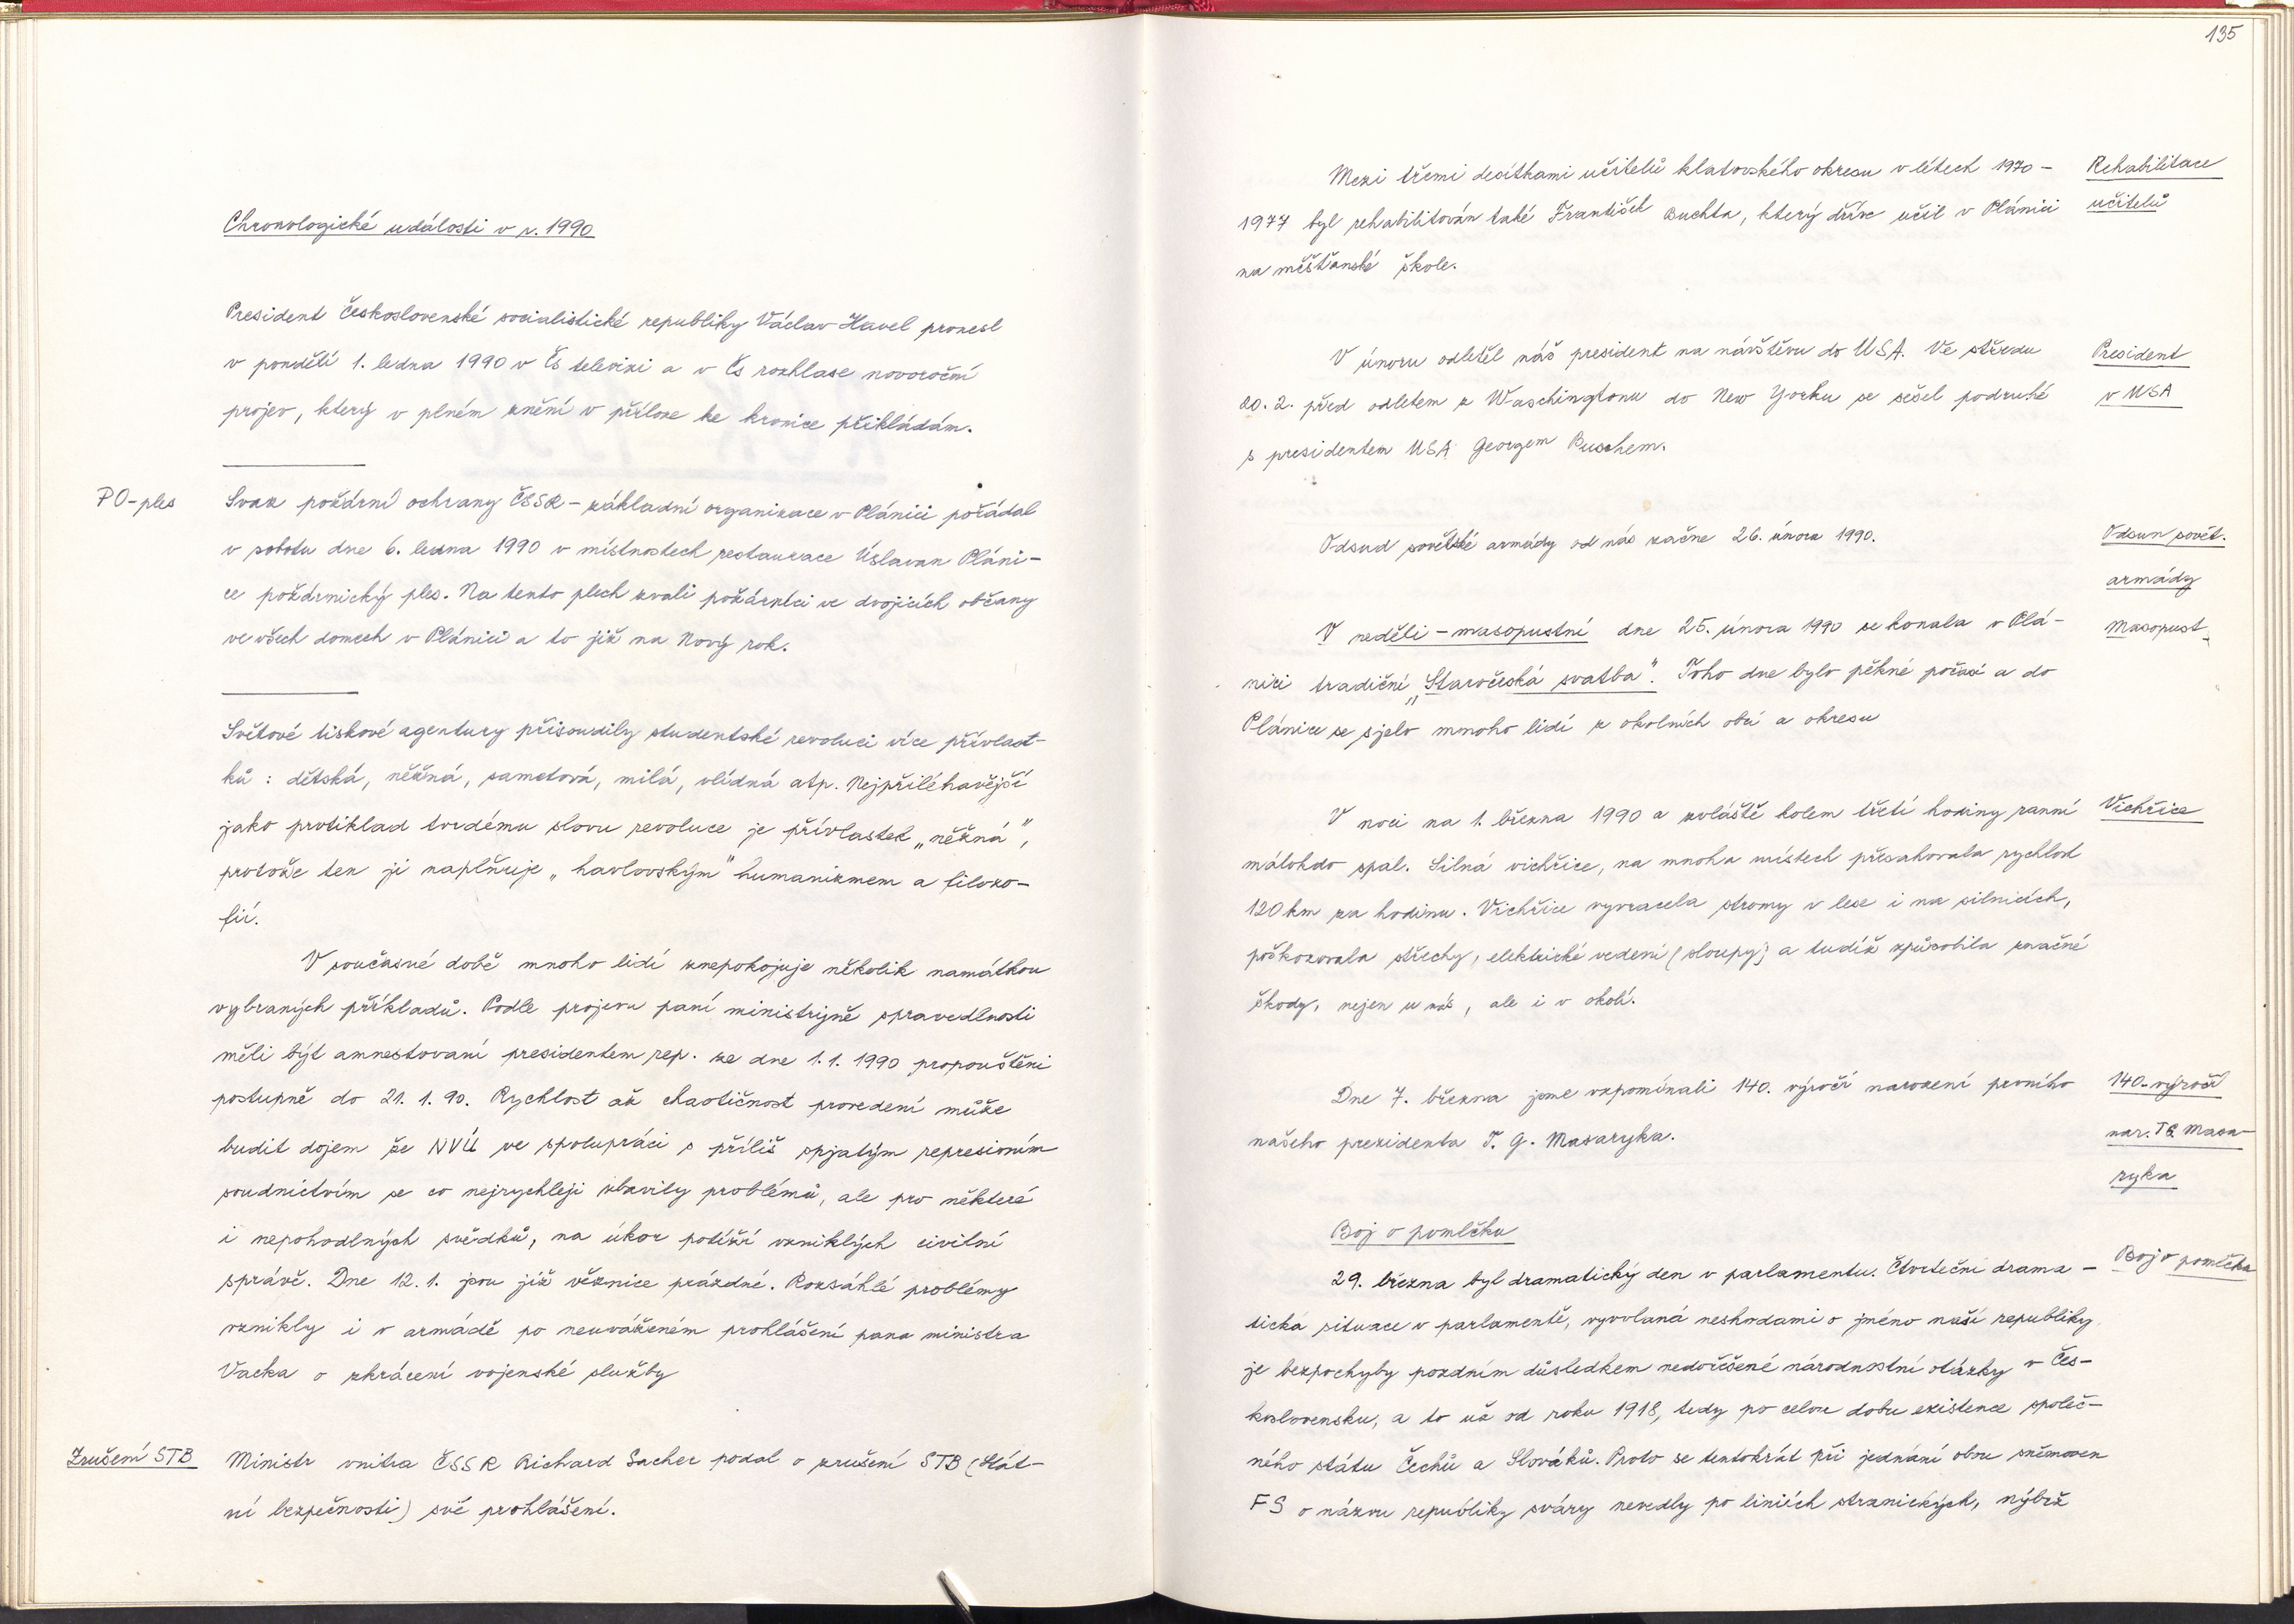 Chronologické události v r. 1990
President Československé socialistické republiky Václav Havel pronesl
v pondělí 1. ledna 1990 v Čs televizi a v Čs rozhlase novoroční
projev, který v plném znění v příloze ke kronice přikládám.
PO-ples
Svaz požární ochrany ČSSR - základní organizace v Plánici pořádal
v sobotu dne 6. ledna 1990 v místnostech restaurace Úslavan Pláni-
ce požárnický ples. Na tento plech zvali požárníci ve dvojicích občany
ve všech domech v Plánici a to již na Nový rok.
Světové tiskové agentury přisoudily studentské revoluci více přívlast-
ků : dětská, něžná, sametová, milá, vlídná atp. Nejpřiléhavější
jako protiklad tvrdému slovu revoluce je přívlastek „něžná",
protože ten ji naplňuje „havlovským" humanizmem a filozo-
fií.
V současné době mnoho lidí znepokojuje několik namátkou
vybraných příkladů. Podle projevu paní ministryně spravedlnosti
měli být amnestovaní presidentem rep. ze dne 1.1. 1990 propouštěni
postupně do 21. 1. 90. Rychlost až chaotičnost provedení může
budit dojem že NVÚ ve spolupráci s příliš spjatým represioním
soudnictvím se co nejrychleji zbavily problémů, ale pro některé
i nepohodlných svědků, na úkor potíží vzniklých civilní
správě. Dne 12.1. jsou již věznice prázdné. Rozsáhlé problémy
vznikly i v armádě po neuváženém prohlášení pana ministra
Vacka o zkrácení vojenské služby
Zrušení STB
Ministr vnitra ČSSR Richard Sacher podal o zrušení STB (Stát-
ní bezpečnosti) své prohlášení.
135
Mezi třemi desítkami učitelů klatovského okresu v létech 1970 -
Rehabilitace
1977 byl rehabilitován také František Buchta, který dříve učil v Plánici
učitelů
na měšťanské škole.
V únoru odletěl náš president na návštěvu do USA. Ve středu
President
20. 2. před odletem z Waschingtonu do New Yorku se sešel podruhé
v USA
s presidentem USA Georgem Buschem.
Odsud sovětské armády od nás začne 26. února 1990.
Odsun sovět.
armády
V neděli - masopustní dne 25. února 1990 se konala v Plá-
Masopust
nici tradiční „Staročeská svatba". Toho dne bylo pěkné počasí a do
Plánice se sjelo mnoho lidí z okolních obcí a okresu
V noci na 1. března 1990 a zvláště kolem třetí hodiny ranní
Vichřice
málokdo spal. Silná vichřice, na mnoha místech přesahovala rychlost
120 km za hodinu. Vichřice vyvracela stromy v lese i na silnicích,
poškozovala střechy, elektrické vedení (sloupy) a tudíž způsobila značné
škody, nejen u nás, ale i v okolí.
Dne 7. března jsme vzpomínali 140. výročí narození prvního
140. výročí
našeho prezidenta T. G. Masaryka.
nar. TG. Masa-
ryka
Boj o pomlčku
29. března byl dramatický den v parlamentu. Čtvrteční drama -
Boj o pomlčku
tická situace v parlamentě, vyvolaná neshodami o jméno naší republiky
je bezpochyby pozdním důsledkem nedořešené národnostní otázky v Čes-
koslovensku, a to už od roku 1918, tedy po celou dobu existence společ-
ného státu Čechů a Slováků. Proto se tentokrát při jednání obou sněmoven
FS o názvu republiky sváry nevedly po liniích stranických, nýbrž